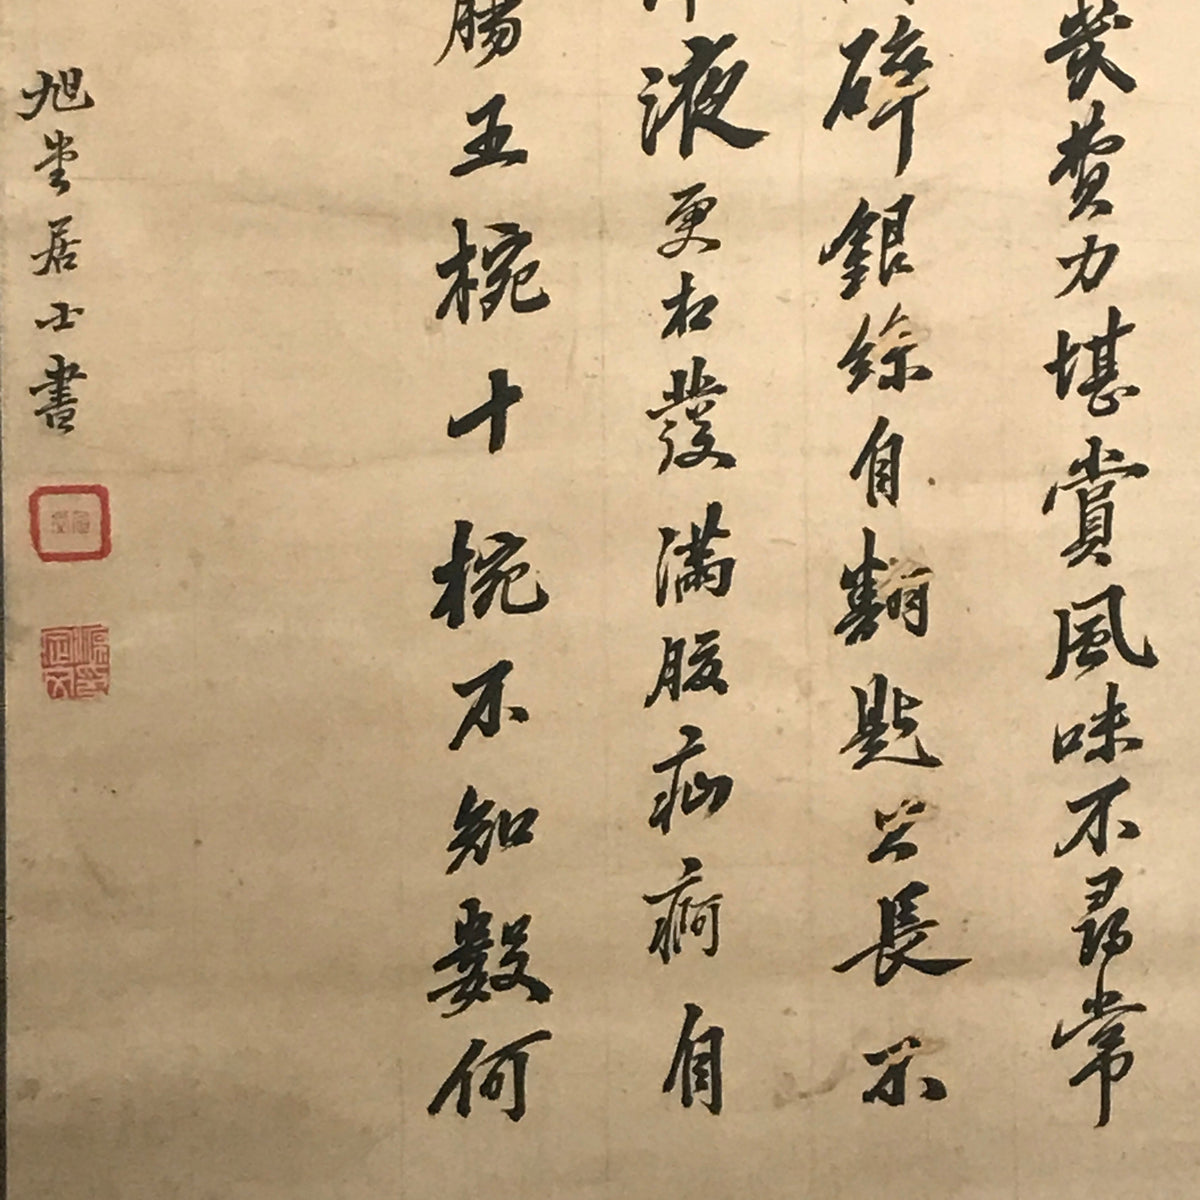 幾費力堪賞風味不尋常
碎銀綜自翻匙公長不
液更相發滿腹疝痾自
腸五椀十椀不知數何
旭堂居士書